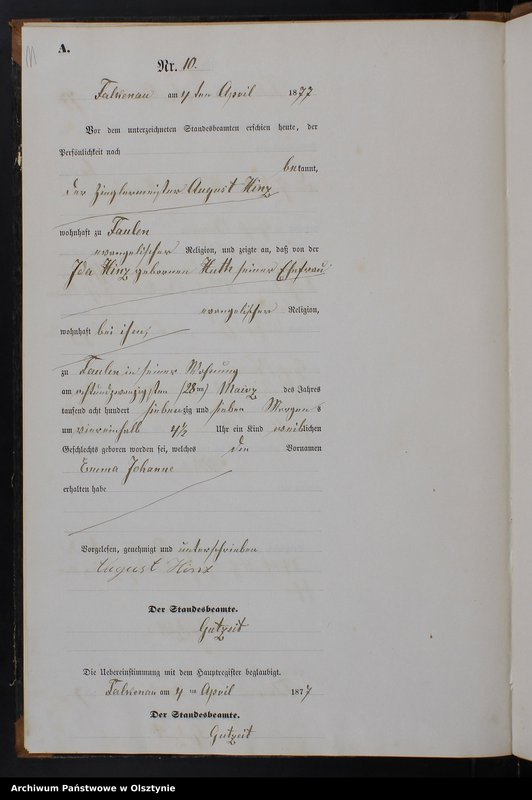 A.
Nr. 10.
Falkenau am 4 ten April 1877
Vor dem unterzeichneten Standesbeamten erschien heute, der
Persönlichkeit nach
bekannt,
der Zieglermeister August Hinz
wohnhaft zu Faulen
evangelischer Religion, und zeigte an, daß von der
Ida Hinz geborenen Huth seiner Ehefrau
evangelischer Religion,
wohnhaft bei ihm,
zu Faulen in seiner Wohnung
am achtundzwanzigsten (28ten) Maerz des Jahres
tausend acht hundert siebenzig und sieben Morgens
um viereinhalb 4½ Uhr ein Kind weiblichen
Geschlechts geboren worden sei, welches die Vornamen
Emma Johanne
erhalten habe
Vorgelesen, genehmigt und unterschrieben
August Hinz
Der Standesbeamte.
Gutzeit
Die Uebereinstimmung mit dem Hauptregister beglaubigt.
Falkenau am 4 ten April 1877
Der Standesbeamte.
Gutzeit
Archiwum Państwowe w Olsztynie